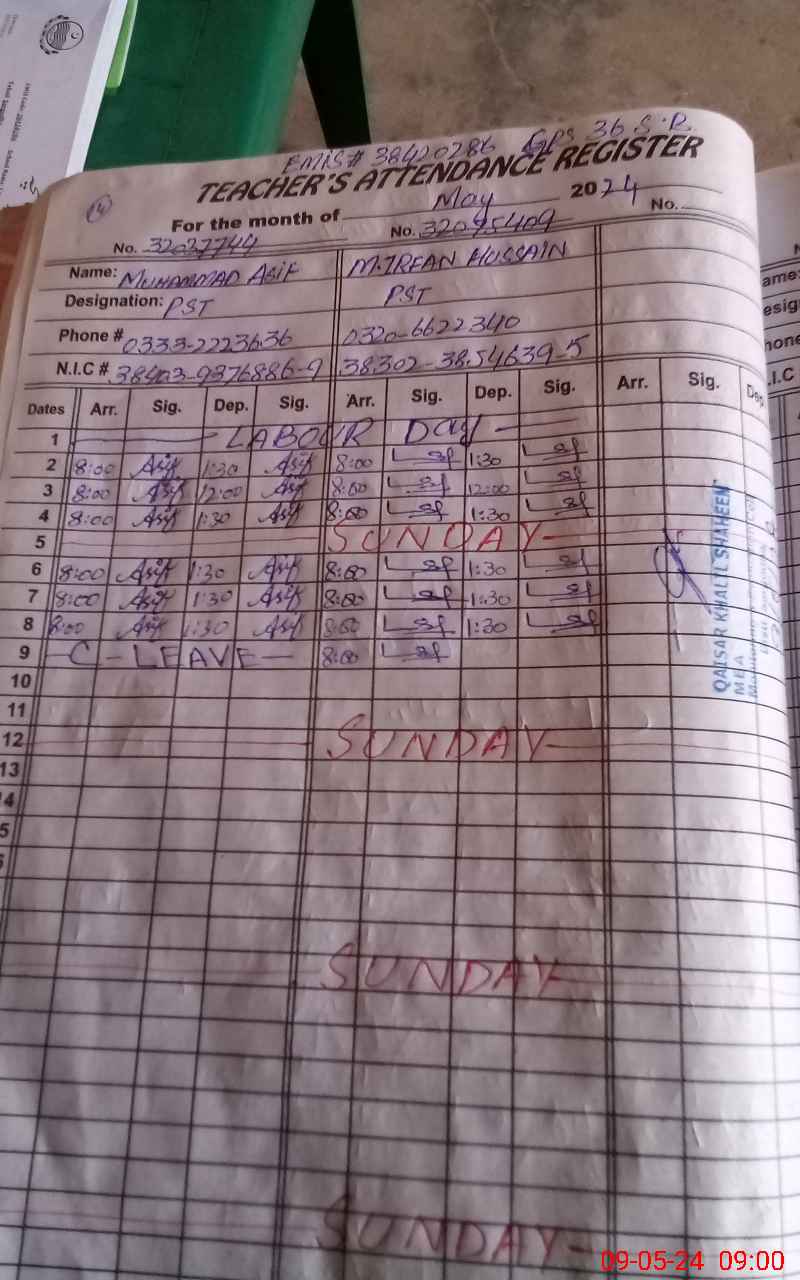 EMIS# 38420286 GPS 36 S.B
TEACHER'S ATTENDANCE REGISTER
14
For the month of May 2024
No. 32037744 No. 32095409 No.
Name: MUHAMMAD ASIF M.IRFAN HUSSAIN
Designation: PST PST
Phone # 0333-2223636 0320-6622340
N.I.C # 38403-9376886-9 38302-3854639-5
Dates Arr. Sig. Dep. Sig. Arr. Sig. Dep. Sig. Arr. Sig. Dep
1 LABOUR Day
2 8:00 Asif 1:30 Asif 8:00 1:30
3 8:00 Asif 12:00 Asif 8:00 12:00
4 8:00 Asif 1:30 Asif 8:00 1:30
5 SUNDAY
6 8:00 Asif 1:30 Asif 8:00 1:30
7 8:00 Asif 1:30 Asif 8:00 1:30
8 8:00 Asif 1:30 Asif 8:00 1:30
9 C-LEAVE 8:00
10
11
12 SUNDAY
13
4
5
SUNDAY
SUNDAY
QAISAR KHALIL SHAHEEN
MEA
ame:
esig
hone
.I.C
09-05-24 09:00